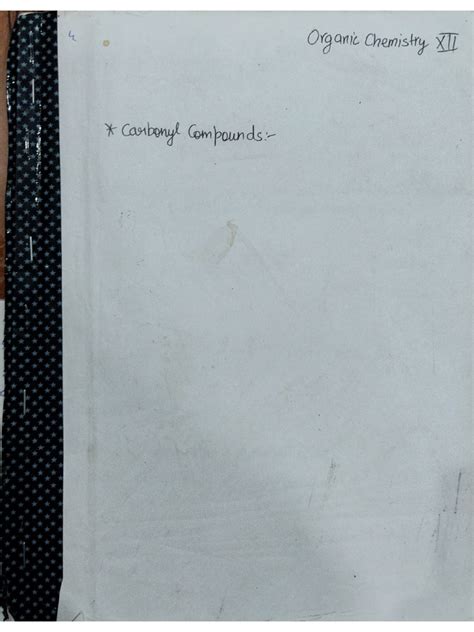 Organic Chemistry XII
* Carbonyl Compounds:-